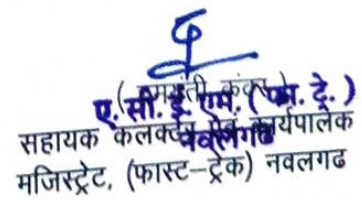 ए. सी. ई. एम. ( फा. ट्रे. )
नवलगढ
सहायक कलक्टर एवं कार्यपालक
मजिस्ट्रेट, (फास्ट-ट्रेक) नवलगढ